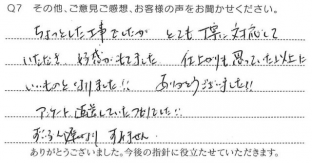 Q7 その他、ご意見ご感想、お客様の声をお聞かせください。
ちょっとした工事でしたが とても 対応して
いただき 好感がもてました 仕上がりも思っていた以上に
いいものとなりました!! ありがとうございました!!
アンケート 返送していたつもりでした!!
 遅くなり すみません
ありがとうございました。今後の指針に役立たせていただきます。